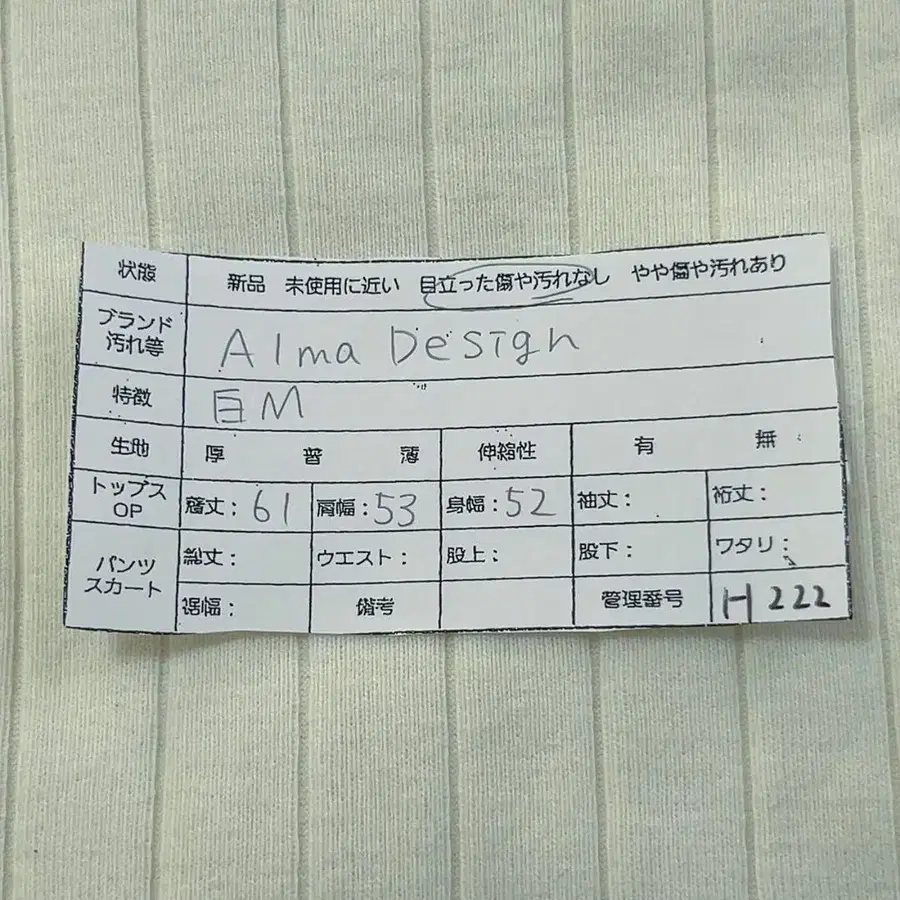 状態 新品 未使用に近い 目立った傷や汚れなし やや傷や汚れあり
ブランド
汚れ等 Alma Design
特徴 白M
生地 厚 普 薄 伸縮性 有 無
トップス
OP 着丈:61 肩幅:53 身幅:52 袖丈: 裄丈:
パンツ
スカート 総丈: ウエスト: 股上: 股下: ワタリ:
裾幅: 備考 管理番号 H222